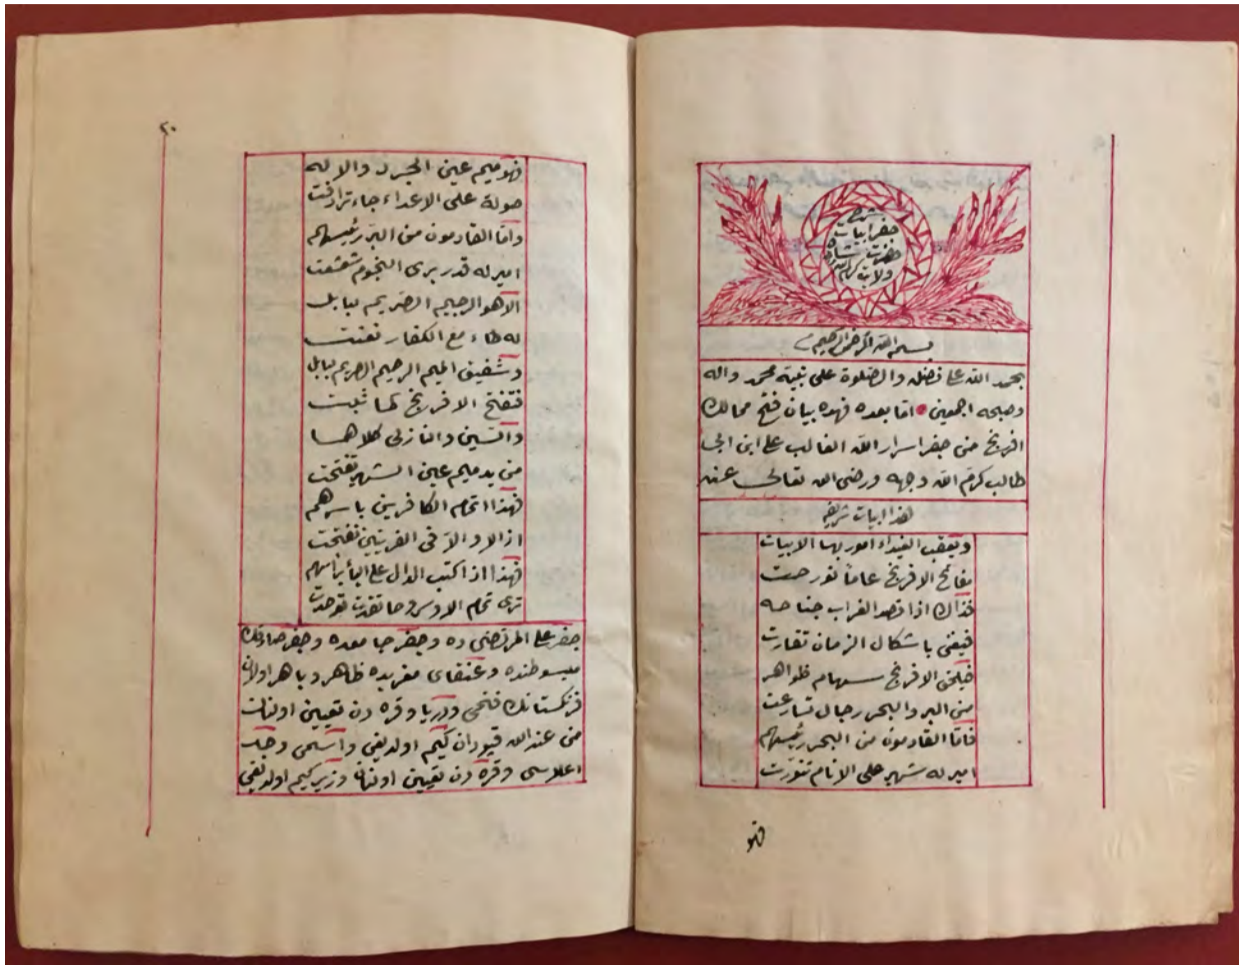 جفر ابيات
حضرت شاه
ولايت كرم الله
بسم الله الرحمن الرحيم
بحمد الله على فضله والصلوة على نبيه محمد واله
وصحبه اجمعين اما بعده فهذه بيان فتح ممالك
افرنج من جفر اسرار الله الغالب على ابن ابى
طالب كرم الله وجهه ورضى الله تعالى عنه
هذا ابيات شريفه
ويعقب الفيداء امور بها الابيات
مفاتح الافرنج عاماً
فذاك اذا قصد الغراب جناحه
فيفنى باشكال الزمان تقارت
فيلحق الافرنج سهام ظواهر
من البر والبحر رجال تسارعت
فامّا القادمون من البحر رئيسهم
امير له شهر على الانام تنورت
فهو
٢٠
فهو ميم عين الجبرد والاله
صولة على الاعداء جاء ترادفت
وامّا القادمون من البر رئيسهم
امير له قدر يرى النجوم تشعشعت
الا هو الرجيم الصريم ببابل
له طاء مع الكفار تفنت
وشفيق الميم الرحيم الصريم ببابل
فتفتح الافرنج لها ثبت
والسين والنازلى كلاهما
من يد ميم عين الشهر تفتحت
فهذا اتمام الكافرين باسرهم
اذ الا والا فى القريتين تفتحت
فهذا اذا كتب الدال على اليأ برأسهم
ترى تمام الاوس وما تقدت توحدت
جفر على المرتضى ده وجفر جامعده وجفر صادقك
مبسوطنده وعنقاى مغربده ظاهر وباهر اولان
فرنكستانك فتحى ودريا وقره دن تعيين اولنان
من عند الله قپودان كيم اولديغى واسمى وجد
اعلاسى وقره دن تعيين اولنان وزير كيم اولديغى